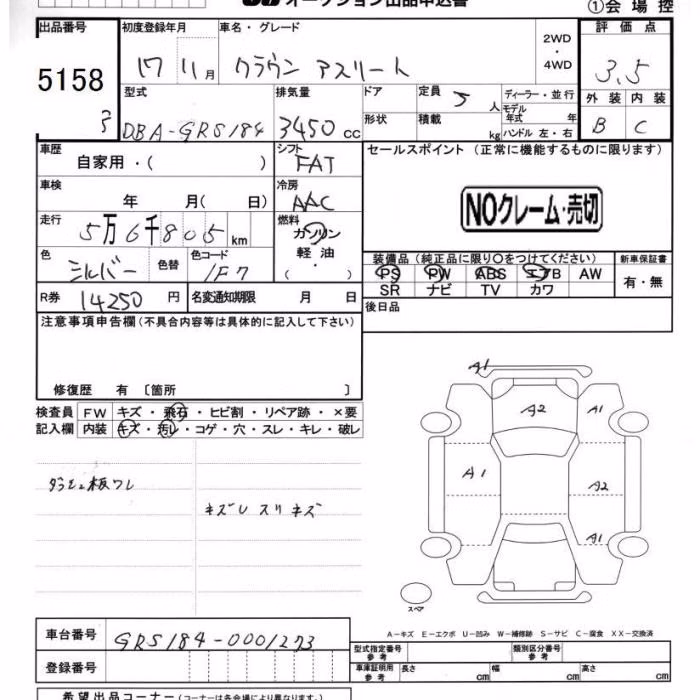 オークション出品申込書
①会場控
出品番号 初度登録年月 車名・グレード 2WD・4WD 評価点
5158 17 11月 クラウン アスリート 3.5
型式 排気量 ドア 定員 5人 ディーラー・並行 外装 内装
DBA-GRS184 3450cc 形状 積載 kg モデル年式 年 ハンドル 左・右 B C
車歴 自家用・( ) シフト FAT セールスポイント (正常に機能するものに限ります)
車検 年 月( 日) 冷房 AAC NOクレーム・売切
走行 5万6千805km 燃料 ガソリン・軽油・( )
色 シルバー 色替 色コード 1F7 装備品 (純正品に限り○をつけてください) 新車保証書
PS PW ABS エアB AW 有・無
R券 14250円 名変通知期限 月 日 SR ナビ TV カワ
後日品
注意事項申告欄 (不具合内容等は具体的に記入して下さい)
修復歴 有 〔箇所 〕
検査員 FW キズ・飛石・ヒビ割・リペア跡・×要
記入欄 内装 キズ・汚レ・コゲ・穴・スレ・キレ・破レ
A1
A2 A1
ダッシュ板ワレ A1 A2
キズUスリキズ
A1
スペア
A−キズ E−エクボ U−凹み W−補修跡 S−サビ C−腐食 XX−交換済
車台番号 GRS184-0001273 型式指定番号 参考 類別区分番号 参考
登録番号 車庫証明用 参考 長さ cm 幅 cm 高さ cm
希望出品コーナー (コーナーは各会場により異なります。)